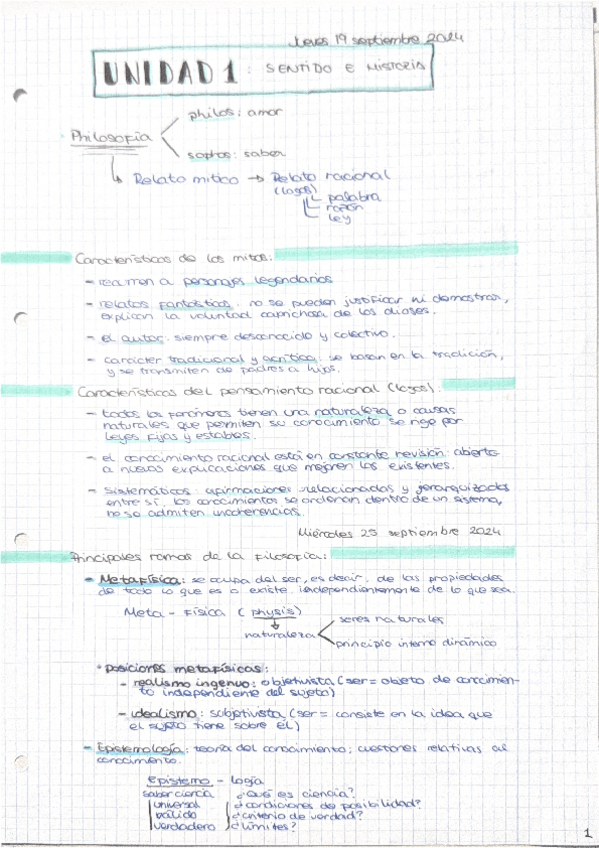 Jueves 19 septiembre 2024
UNIDAD 1: SENTIDO E HISTORIA
philos: amor
Philosofía
sophos: saber
Relato mítico → Relato racional
(logos)
palabra
razón
ley
Características de los mitos:
- recurren a personajes legendarios
- relatos fantásticos, no se pueden justificar ni demostrar,
explican la voluntad caprichosa de los dioses.
- el autor: siempre desconocido y colectivo.
- carácter tradicional y acrítico, se basan en la tradición,
y se transmiten de padres a hijos.
Características del pensamiento racional (logos):
- todos los fenómenos tienen una naturaleza o causas
naturales que permiten su conocimiento se rige por
leyes fijas y estables.
- el conocimiento racional está en constante revisión: abierto
a nuevas explicaciones que mejoren las existentes.
- sistemáticos: afirmaciones relacionadas y jerarquizadas
entre sí, los conocimientos se ordenan dentro de un sistema,
no se admiten incoherencias.
Miércoles 25 septiembre 2024
Principales ramas de la Filosofía:
- Metafísica: se ocupa del ser, es decir, de las propiedades
de todo lo que es o existe independientemente de lo que sea.
Meta - Física (physis)
naturaleza
seres naturales
principio interno dinámico
• posiciones metafísicas:
- realismo ingenuo: objetivista (ser = objeto de conocimien-
to independiente del sujeto)
- idealismo: subjetivista (ser = consiste en la idea que
el sujeto tiene sobre él)
- Epistemología: teoría del conocimiento; cuestiones relativas al
conocimiento.
epistemo - logía
saber ciencia ¿Qué es ciencia?
universal ¿condiciones de posibilidad?
válido ¿criterio de verdad?
verdadero ¿límites?
1